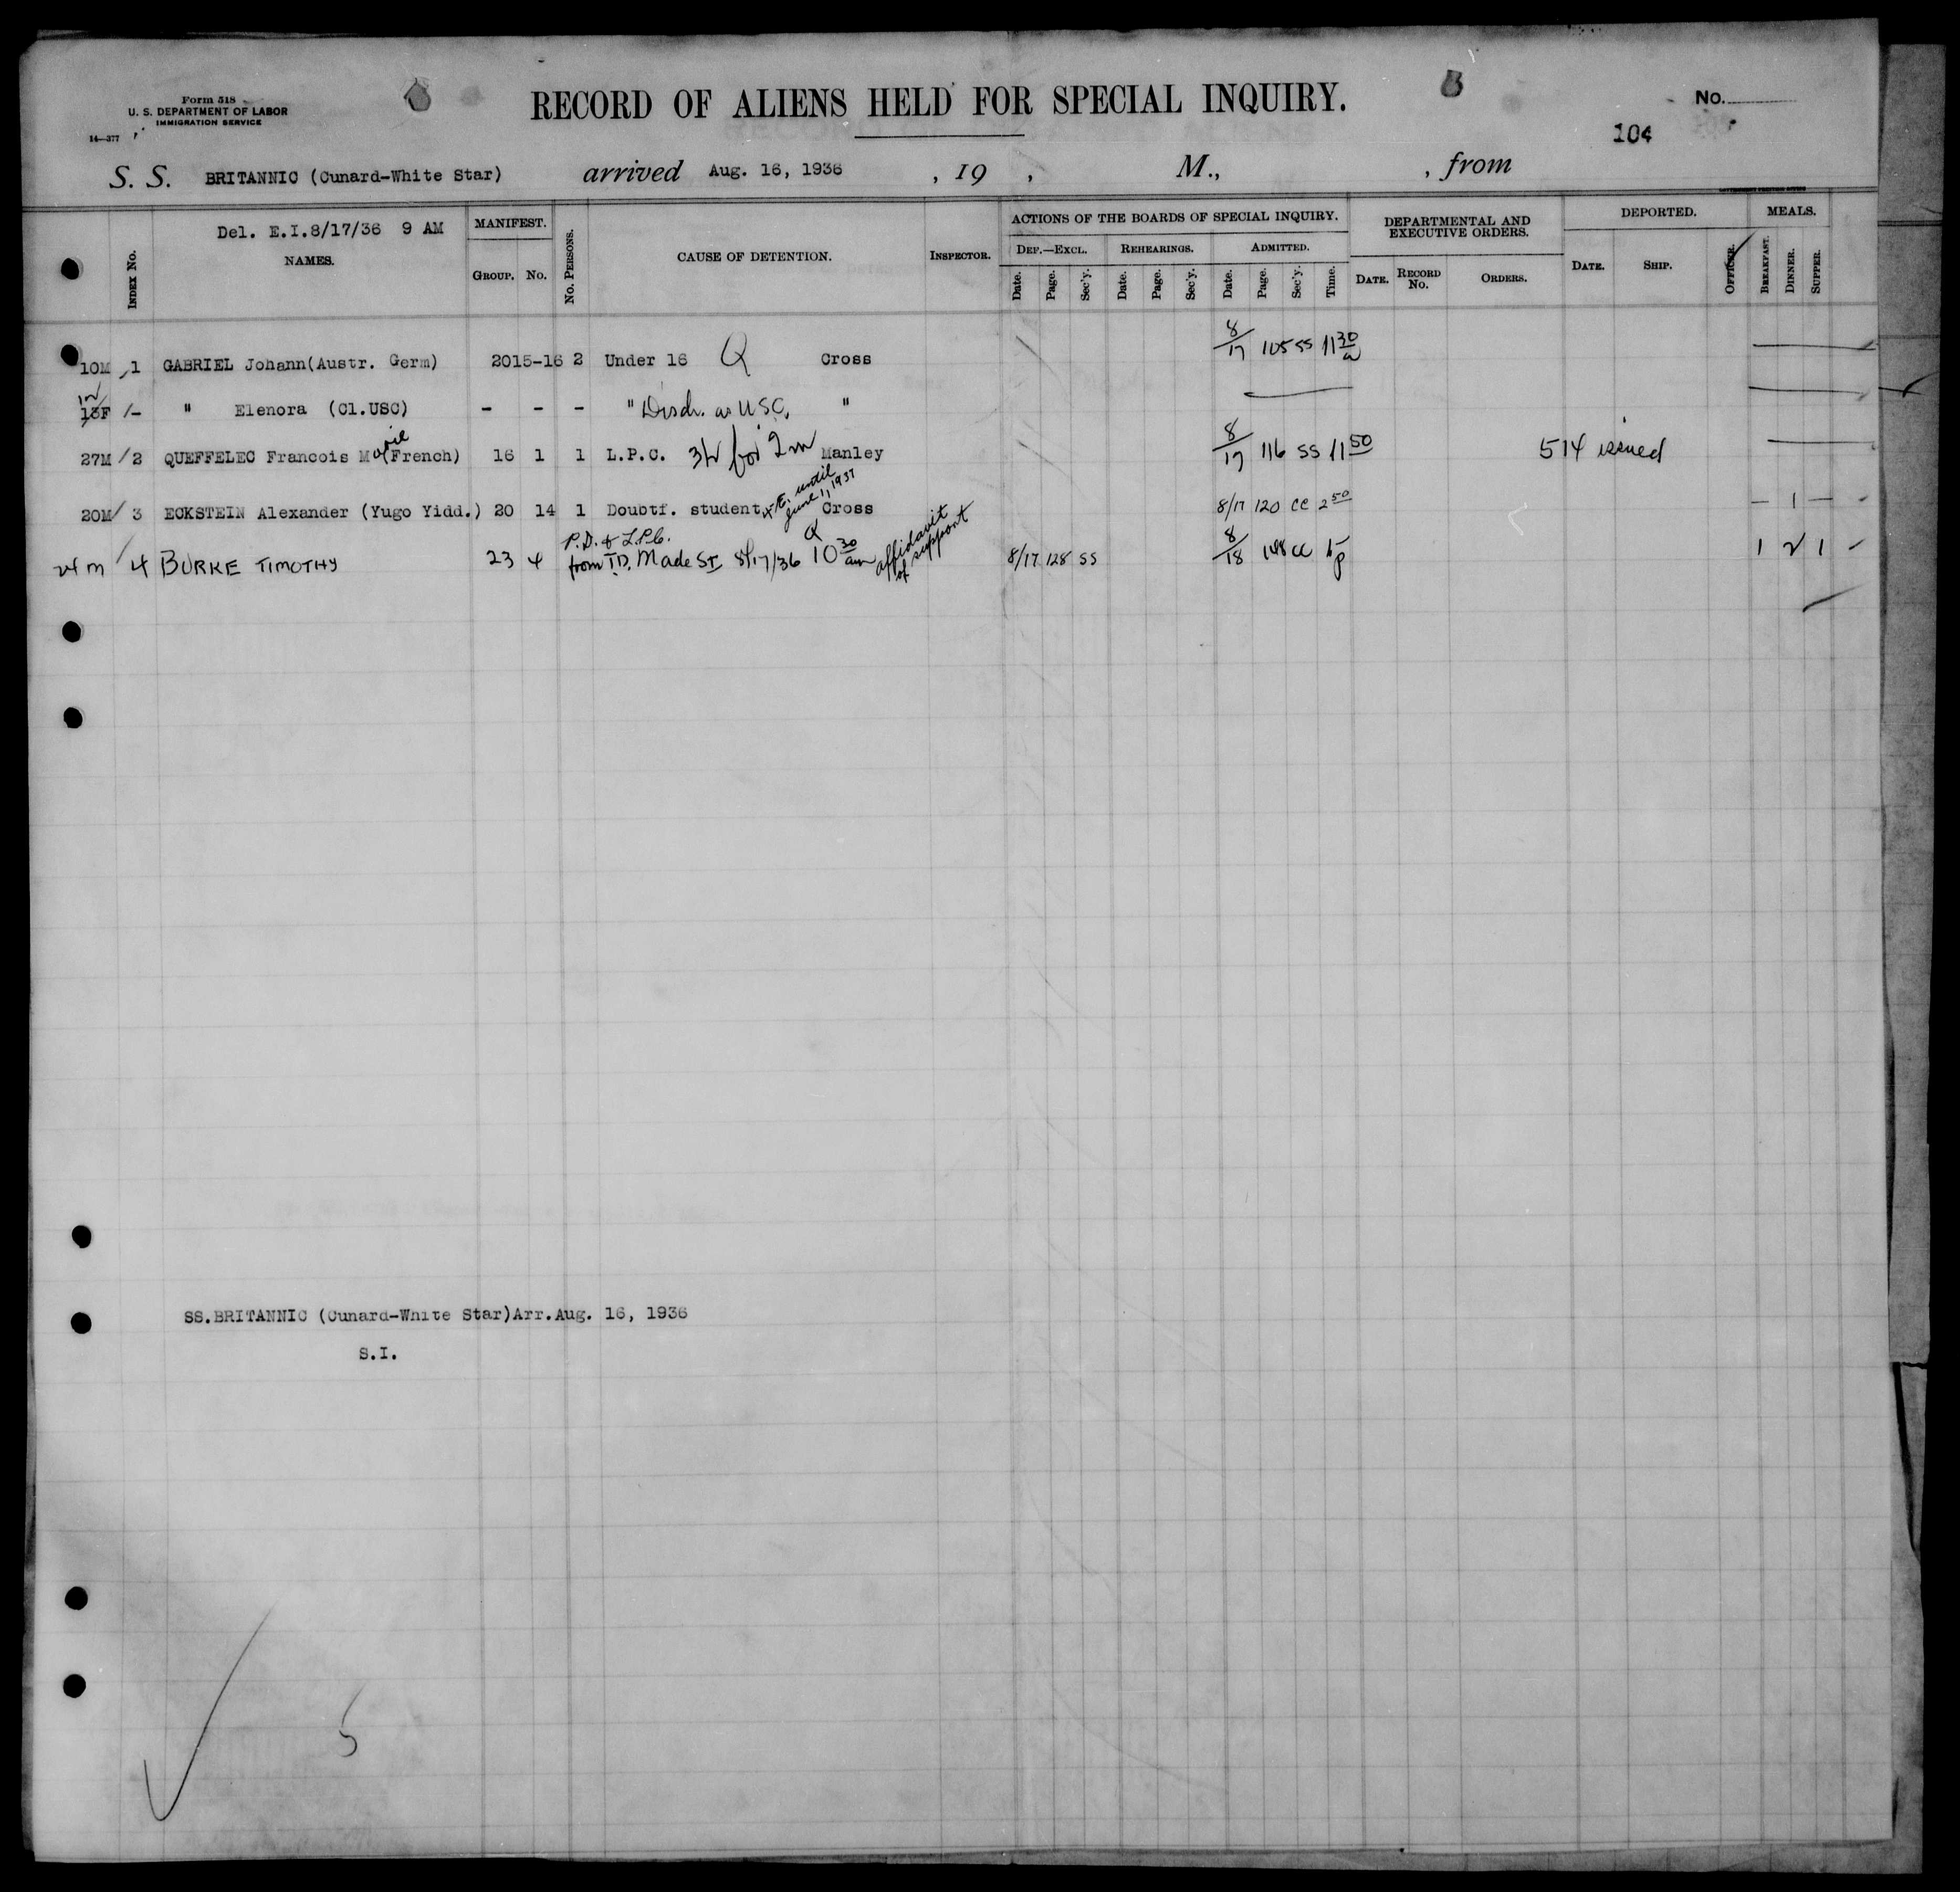 Form 518
U. S. DEPARTMENT OF LABOR
IMMIGRATION SERVICE
14—377
RECORD OF ALIENS HELD FOR SPECIAL INQUIRY.
No.
104
S. S. BRITANNIC (Cunard-White Star) arrived Aug. 16, 1936 , 19 , M., , from
Del. E.I.8/17/36 9 AM
INDEX No. NAMES. MANIFEST. GROUP. No. No. PERSONS. CAUSE OF DETENTION. INSPECTOR.
ACTIONS OF THE BOARDS OF SPECIAL INQUIRY.
DEF.—EXCL. REHEARINGS. ADMITTED.
Date. Page. Sec'y. Date. Page. Sec'y. Date. Page. Sec'y. Time.
DEPARTMENTAL AND EXECUTIVE ORDERS.
DATE. RECORD No. ORDERS.
DEPORTED.
DATE. SHIP. OFFICER.
MEALS.
BREAKFAST. DINNER. SUPPER.
10M 1 GABRIEL Johann(Austr. Germ) 20 15-16 2 Under 16 Q Cross 8/17 105 SS 11 30 a
13F /- " Elenora (Cl.USC) - - - " Disch. as USC. "
27M / 2 QUEFFELEC Francois Marie (French) 16 1 1 L.P.C. for 2 m Manley 8/17 116 SS 11 50 514 issued
20M / 3 ECKSTEIN Alexander (Yugo Yidd.) 20 14 1 Doubtf. student until June 1, 1937 Cross 8/17 120 CC 2 50 — 1 —
P.D. & L.P.C.
24 m / 4 BURKE TIMOTHY 23 4 from T.D. Made SI 8/17/36 10 30 am affidavit of support 8/17 128 SS 8/18 148 CC 1 2 1
SS.BRITANNIC (Cunard-White Star)Arr.Aug. 16, 1936
S.I.
5